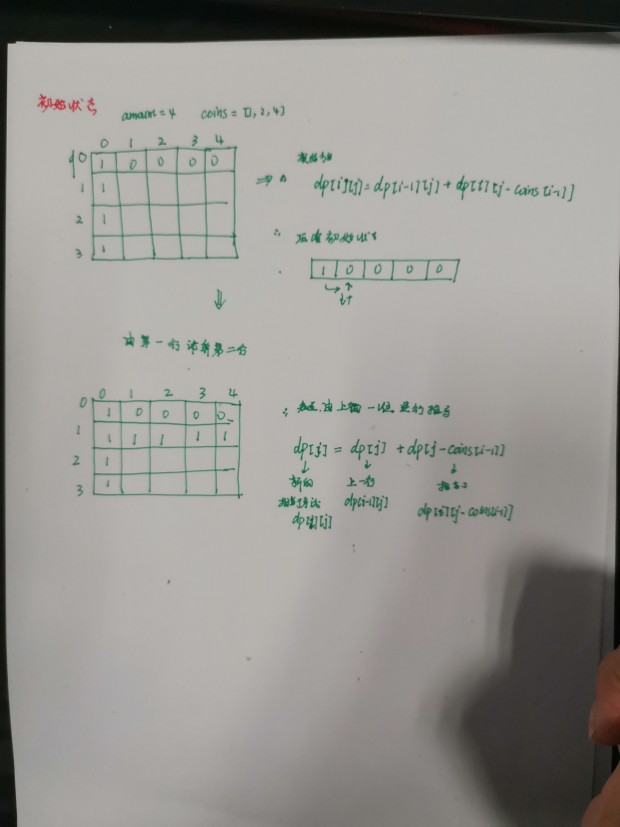 初始状态
amount=4 coins=[1,2,4]
0 1 2 3 4
0 1 0 0 0 0
1 1
2 1
3 1
dp[i][j]=dp[i-1][j]+dp[i][j-coins[i-1]]
∴ 压缩初始状态
1 0 0 0 0
i↑
由第一行计算第二行
0 1 2 3 4
0 1 0 0 0 0
1 1 1 1 1 1
2 1
3 1
dp[j] = dp[j] + dp[j-coins[i-1]]
新的 上一行
dp[i-1][j]
dp[i][j] dp[i][j-coins[i-1]]